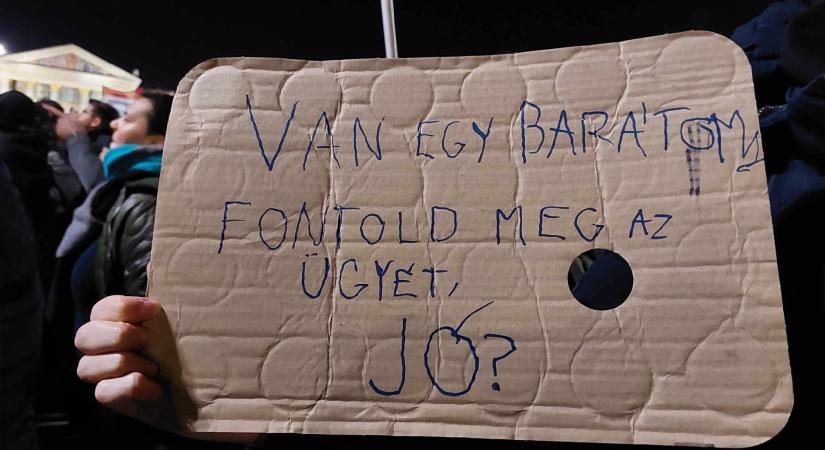 VAN EGY BARÁTOM,
FONTOLD MEG AZ
ÜGYÉT,
JÓ?